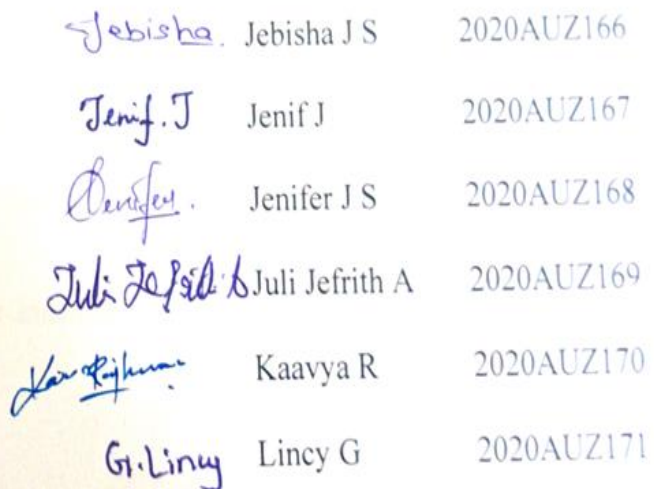 Jebisha. Jebisha J S 2020AUZ166
Jenif. J Jenif J 2020AUZ167
Jenifer. Jenifer J S 2020AUZ168
Juli Jefrith A Juli Jefrith A 2020AUZ169
Kaavya R 2020AUZ170
G. Lincy Lincy G 2020AUZ171